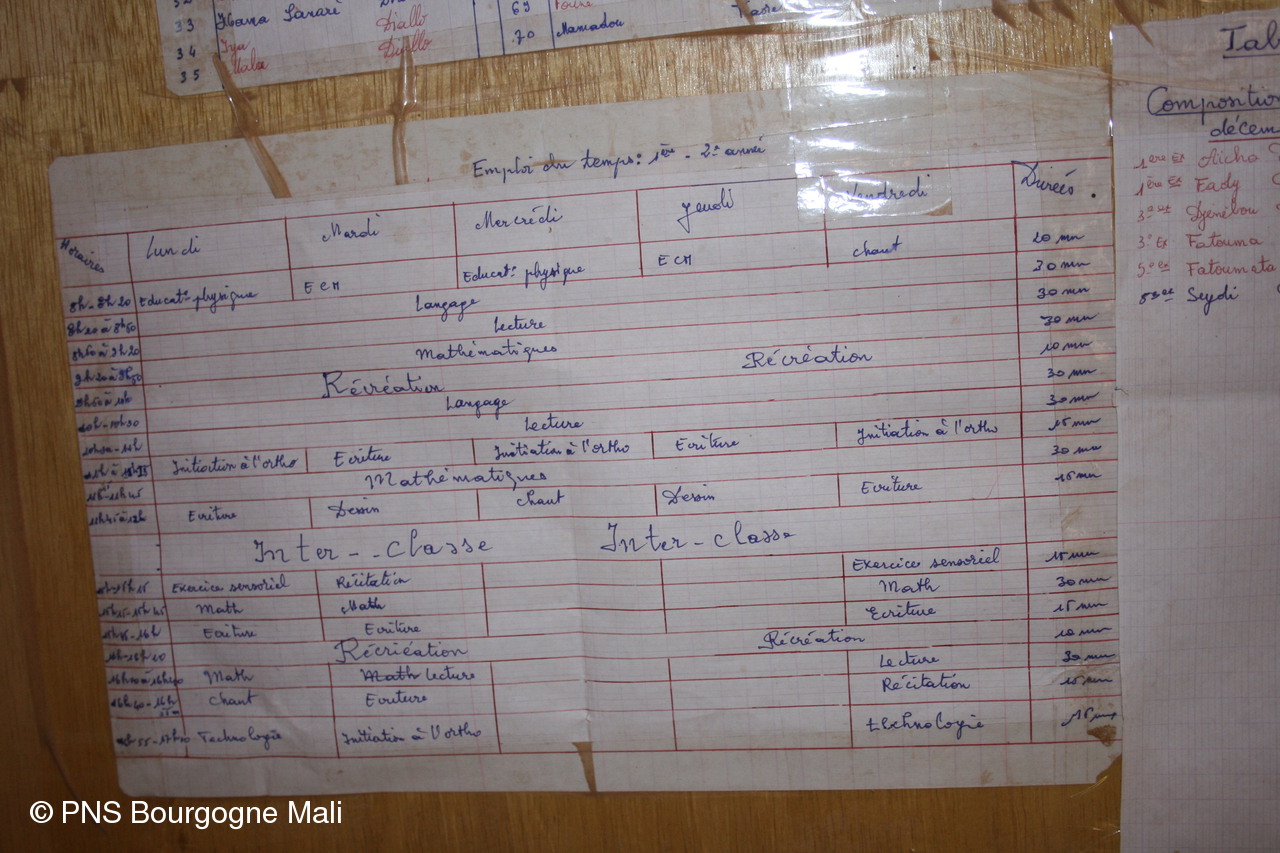 33 Sanaré 69
34 Iya Diallo 70 Mamadou
35 Diallo
Emploi du temps: 1ère - 2e année
Horaires Lundi Mardi Mercredi Jeudi Vendredi Durées.
8h-8h20 Educatº physique ECM Educatº physique ECM chant 20 mn
8h20 à 8h50 Langage 30 mn
8h50 à 9h20 Lecture 30 mn
9h20 à 9h50 Mathématiques 30 mn
9h50 à 10h Récréation Récréation 10 mn
10h-10h30 Langage 30 mn
10h30-11h Lecture 30 mn
Initiation à l'ortho Ecriture Initiation à l'ortho Ecriture Initiation à l'ortho 15 mn
Mathématiques 30 mn
11h45 à 12h Ecriture Dessin chant Dessin Ecriture 15 mn
Inter-classe Inter-classe
Exercice sensoriel Récitation Exercice sensoriel 15 mn
15h15-15h45 Math Math Math 30 mn
15h45-16h Ecriture Ecriture Ecriture 15 mn
16h-16h10 Récriéation Récréation 10 mn
16h10 à 16h40 Math Math Lecture Lecture 30 mn
16h40-16h55 Chant Ecriture Récitation 15 mn
Technologie Initiation à l'ortho technologie 15 mn
Tab
Composition
décem
1ère ex Aicha
1ère ex Fady
3e ex Djénébou
3e ex Fatouma
5e ex Fatoumata
Seydi
© PNS Bourgogne Mali